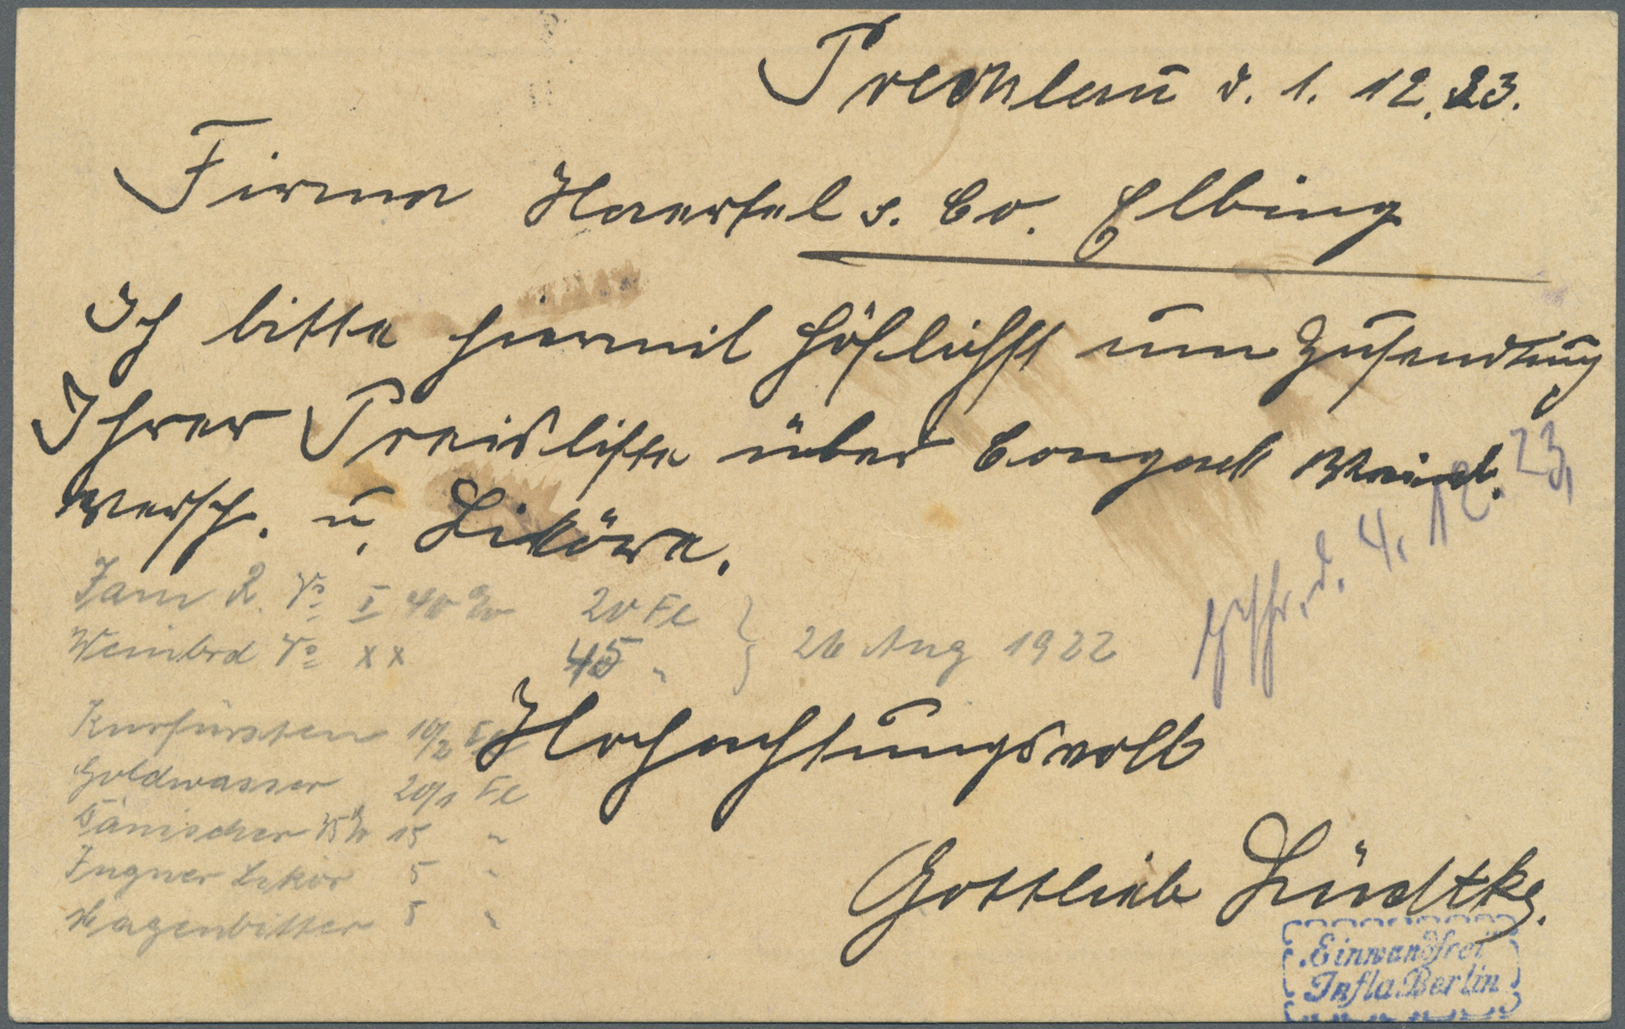 Prechlau d. 1. 12. 23.
Firma Haertel s. Co. Elbing
Ich bitte hiermit höflichst um Zusendung
Ihrer Preisliste über Congack Weinb.
versch. u. Liköre.
Jam R. No I 40 % 20 Fl
Weinbrd No xx 45 "
26 Aug 1922
geschr. d. 4. 12. 23,
Kurfürsten 10/2 Fl
Goldwasser 20/1 Fl
Hochachtungsvoll
Dänischer 15 "
Ingwer Likör 5 "
Magenbitter 5 "
Gottlieb Lüdtke.
Einwandfrei
Infla Berlin